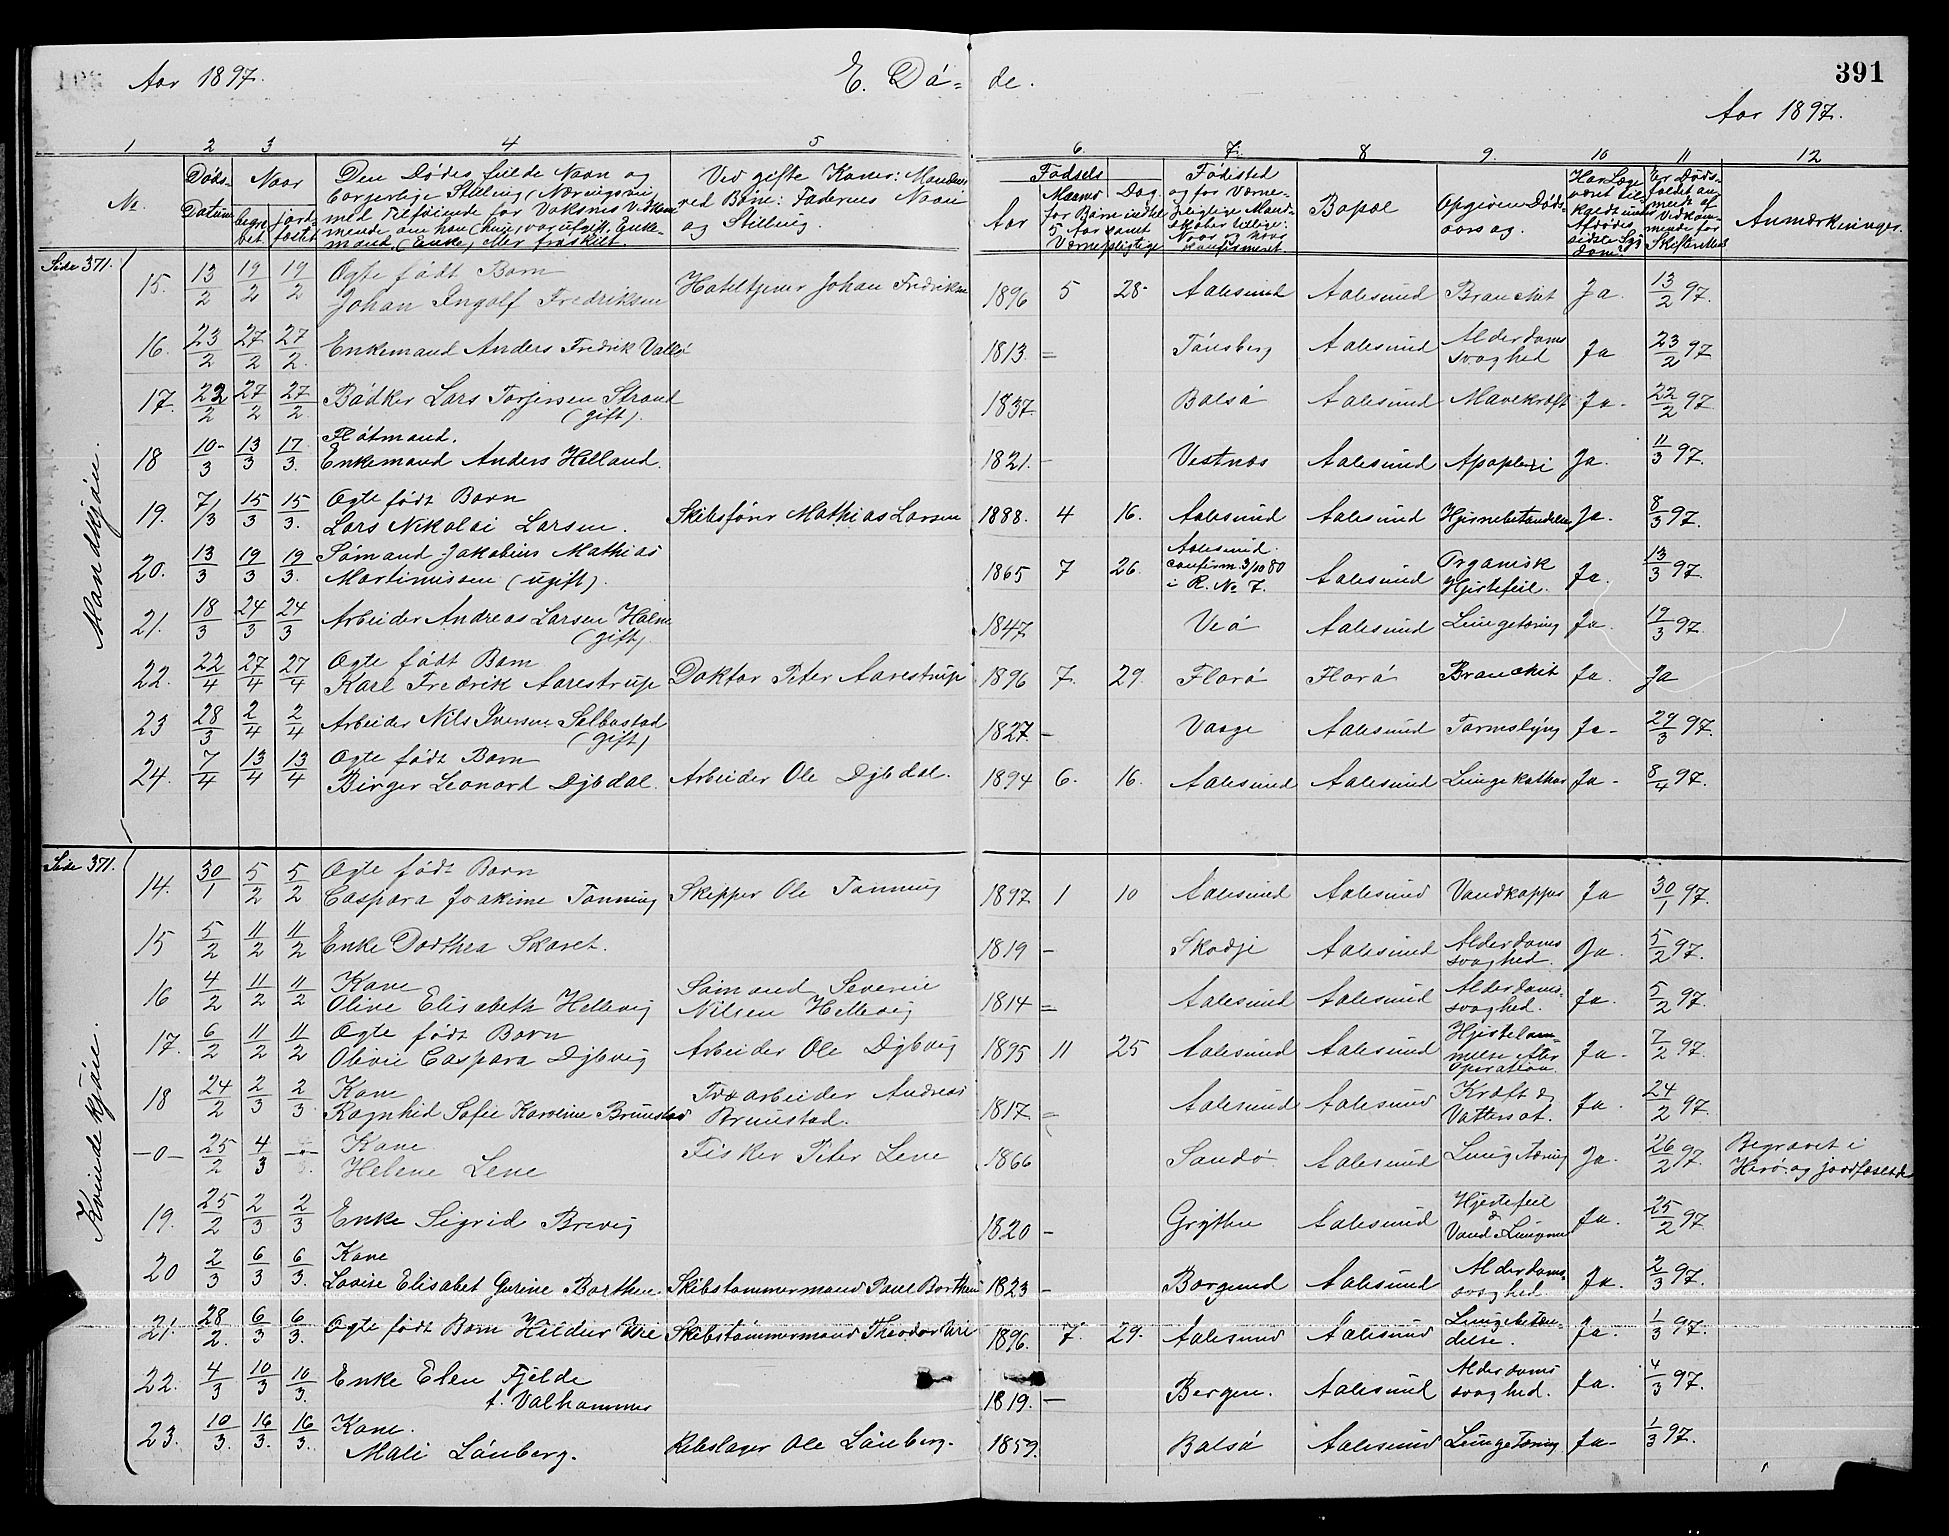 Aar 1897. E. Dö- de. 391
Aar 1897.
1 2 3 4 5 6. 7. 8 9. 10 11 12
No. Döds-Datum Naar begravet jordfæstet Den Dödes fulde Navn og borgerlige Stilling (Næringsvei, Ved gifte Koner: Mandens, ved Börn: Faderens Navn og Stilling Födsels Aar Maaned Dag Födested Bopæl Opgiven Dödsaarsag. Anmærkninger.
Mandkjön.
Side 371.
15. 13/2 19/2 19/2 Ögte födt Barn Johan Ingolf Fredriksen Hoteltjener Johan Fredriksen 1896 5 28 Aalesund Aalesund Bronchit Ja. 13/2 97.
16. 23/2 27/2 27/2. Enkemand Anders Fredrik Vallö 1813. = Tönsberg Aalesund Alderdoms svaghed Ja 23/2 97
17. 22/2 27/2 27/2. Bödker Lars Torjersen Strand (gift). 1837. Bolsö Aalesund Mavekræft Ja. 22/2 97
18 10/3 13/3 17/3. Flötmand. Enkemand Anders Helland. 1821. - Vestnes Aalesund Apoplexi Ja. 11/3 97.
19. 7/3 15/3 15/3. Ögte födt Barn Lars Nikolai Larsen. Skibsförer Mathias Larsen 1888. 4 16. Aalesund Aalesund Hjernebetændelse Ja. 8/3 97.
20. 13/3 19/3 19/3. Sömand Jakobius Mathias Martinussen (ugift). 1865 7 26. Aalesund. confirm. 3/10 80 i R. No 7. Aalesund Organisk Hjertefeil. Ja. 13/3 97.
21. 18/3 24/3 24/3 Arbeider Andreas Larsen Holm (gift) 1847 Veö Aalesund Lungetæring Ja. 19/3 97.
22. 22/4 27/4 27/4 Ögte födt Barn Karl Fredrik Aarestrup Doktor Peter Aarestrup 1896 7. 29. Florö Florö Bronchit Ja. Ja
23 28/3 2/4 2/4 Arbeider Nils Iversen Selbostad (gift) 1827. - Vaage Aalesund Tarmslyng Ja- 29/3 97.
24. 7/4 13/4 13/4 Ögte födt Barn Birger Leonard Dybdal. Arbeider Ole Dybdal. 1894 6. 16. Aalesund Aalesund Lungekathar Ja- 8/4 97.
Kvindekjön.
Side 371.
14. 30/1 5/2 5/2 Ögte födt Barn Caspara Joakime Tonning Skipper Ole Tonning 1897 1 10 Aalesund Aalesund Vandkopper Ja 30/1 97.
15 5/2 11/2 11/2 Enke Dorthea Skaret. 1819 - Skodje Aalesund Alderdoms svaghed. Ja. 5/2 97.
16 4/2 11/2 11/2 Kone Oline Elisabeth Hellevig Sömand Severin Nilsen Hellevig 1814 = Aalesund Aalesund Alderdoms- svaghed. Ja. 5/2 97.
17. 6/2 11/2 11/2 Ögte födt Barn Olivie Caspara Dybvig Arbeider Ole Dybvig 1895 11 25 Aalesund Aalesund Hjertelammelse efter Operation Ja. 7/2 97.
18 24/2 2/3 2/3. Kone Ragnhild Sofie Karoline Brunstad Træarbeider Andreas Brunstad. 1817 = Aalesund Aalesund Kræft & Vattersot. Ja. 24/2 97.
-0- 25/2 4/3 Kone Helene Lene Fisker Peter Lene 1866 Sandö Aalesund Lungetæring Ja. 26/2 97. Begravet i Herö og jordfæstet
19. 25/2 2/3. 2/3 Enke Sigrid Brevig 1820 - Grytten Aalesund Hjertefeil & Vand i Lungerne Ja. 25/2 97
20 2/3 6/3 6/3. Kone Lovise Elisabet Gurine Borthen Skibstömmermand Paul Borthen 1823 - Borgund Aalesund Alderdoms- svaghed. Ja. 2/3 97.
21. 28/2. 6/3 6/3. Ögte födt Barn Hildur Wie Skibstömmermand Theodor Wie 1896. 7. 29. Aalesund Aalesund Lungebetændelse. Ja. 1/3 97.
22. 4/3 10/3 10/3. Enke Elen Fjelde f. Valhammer 1819. - Bergen. Aalesund Alderdoms svaghed. Ja. 4/3 97.
23. 10/3. 16/3. 16/3. Kone. Mali Lönberg. Rebslager Ole Lönberg. 1859. Bolsö Aalesund Lungetæring Ja- 1/3 97.